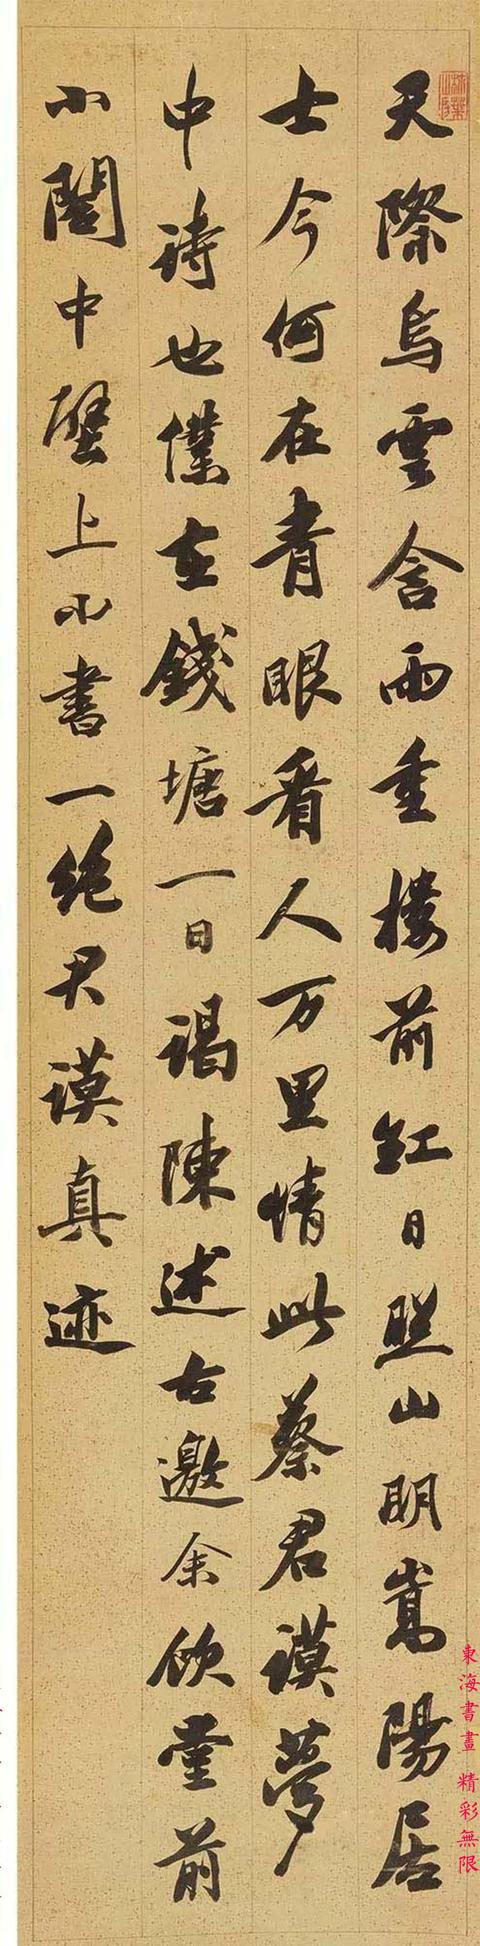 天際烏雲含雨重樓前紅日照山明嵩陽居
士今何在青眼看人万里情此蔡君謨夢
中詩也僕在錢塘一日謁陳述古邀余飲堂前
小閤中壁上小書一絕君謨真迹
東海書畫 精彩無限